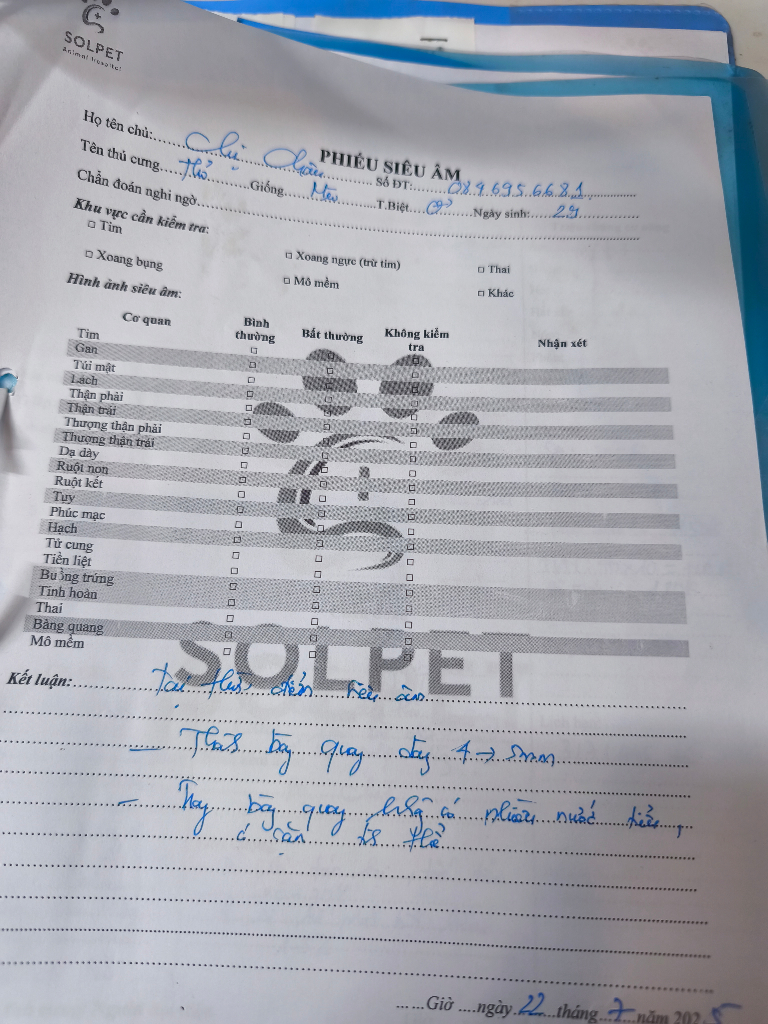 SOLPET
Animal Hospital
PHIẾU SIÊU ÂM
Họ tên chủ: Chị Châu Số ĐT: 089.695.6681
Tên thú cưng Thỏ Giống Mèo T.Biệt Ngày sinh: 2
Chẩn đoán nghi ngờ
Khu vực cần kiểm tra:
□ Tim □ Xoang ngực (trừ tim) □ Thai
□ Xoang bụng □ Mô mềm □ Khác
Hình ảnh siêu âm:
Cơ quan Bình thường Bất thường Không kiểm tra Nhận xét
Tim
Gan
Túi mật
Lách
Thận phải
Thận trái
Thượng thận phải
Thượng thận trái
Dạ dày
Ruột non
Ruột kết
Tụy
Phúc mạc
Hạch
Tử cung
Tiền liệt
Buồng trứng
Tinh hoàn
Thai
Bàng quang
Mô mềm
SOLPET
Kết luận: Tại thời điểm siêu âm
- Thành bàng quang dày 4 → 5mm
- Trong bàng quang có nhiều nước tiểu,
có cặn
Giờ ngày 22 tháng 7 năm 2025